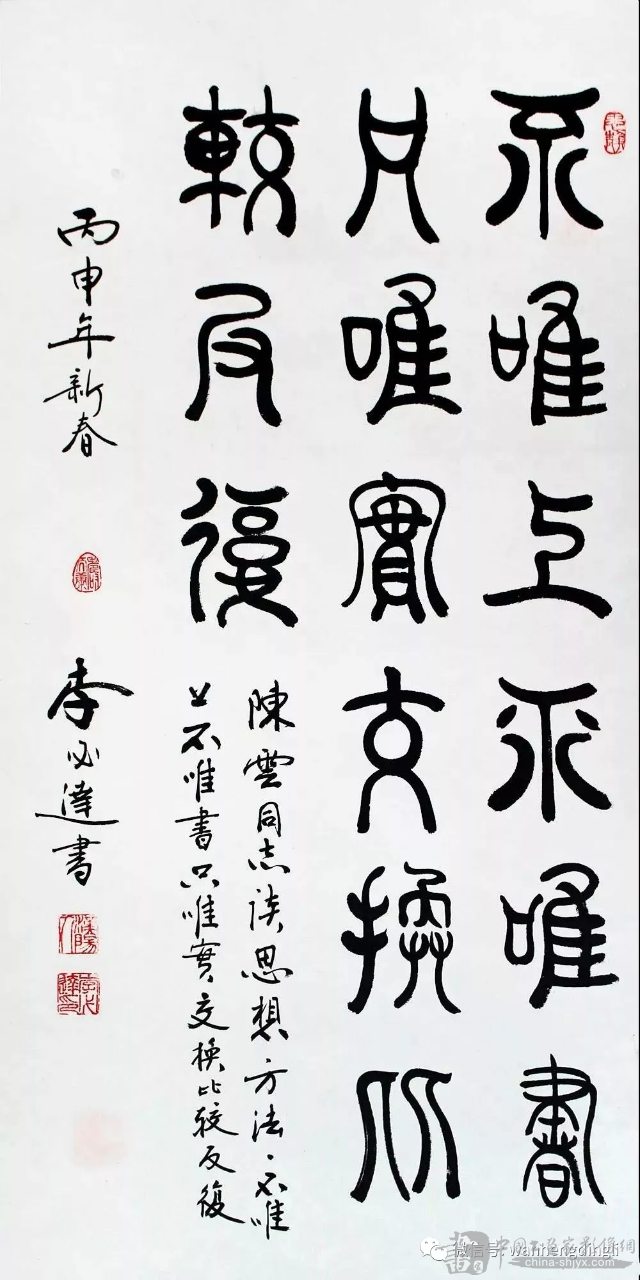 不唯上不唯書
只唯實交換比
較反復
陳雲同志談思想方法、不唯
上不唯書只唯實交換比較反復
丙申年新春
李必達書
微信号: wanhengdingli
china-shjyx.com